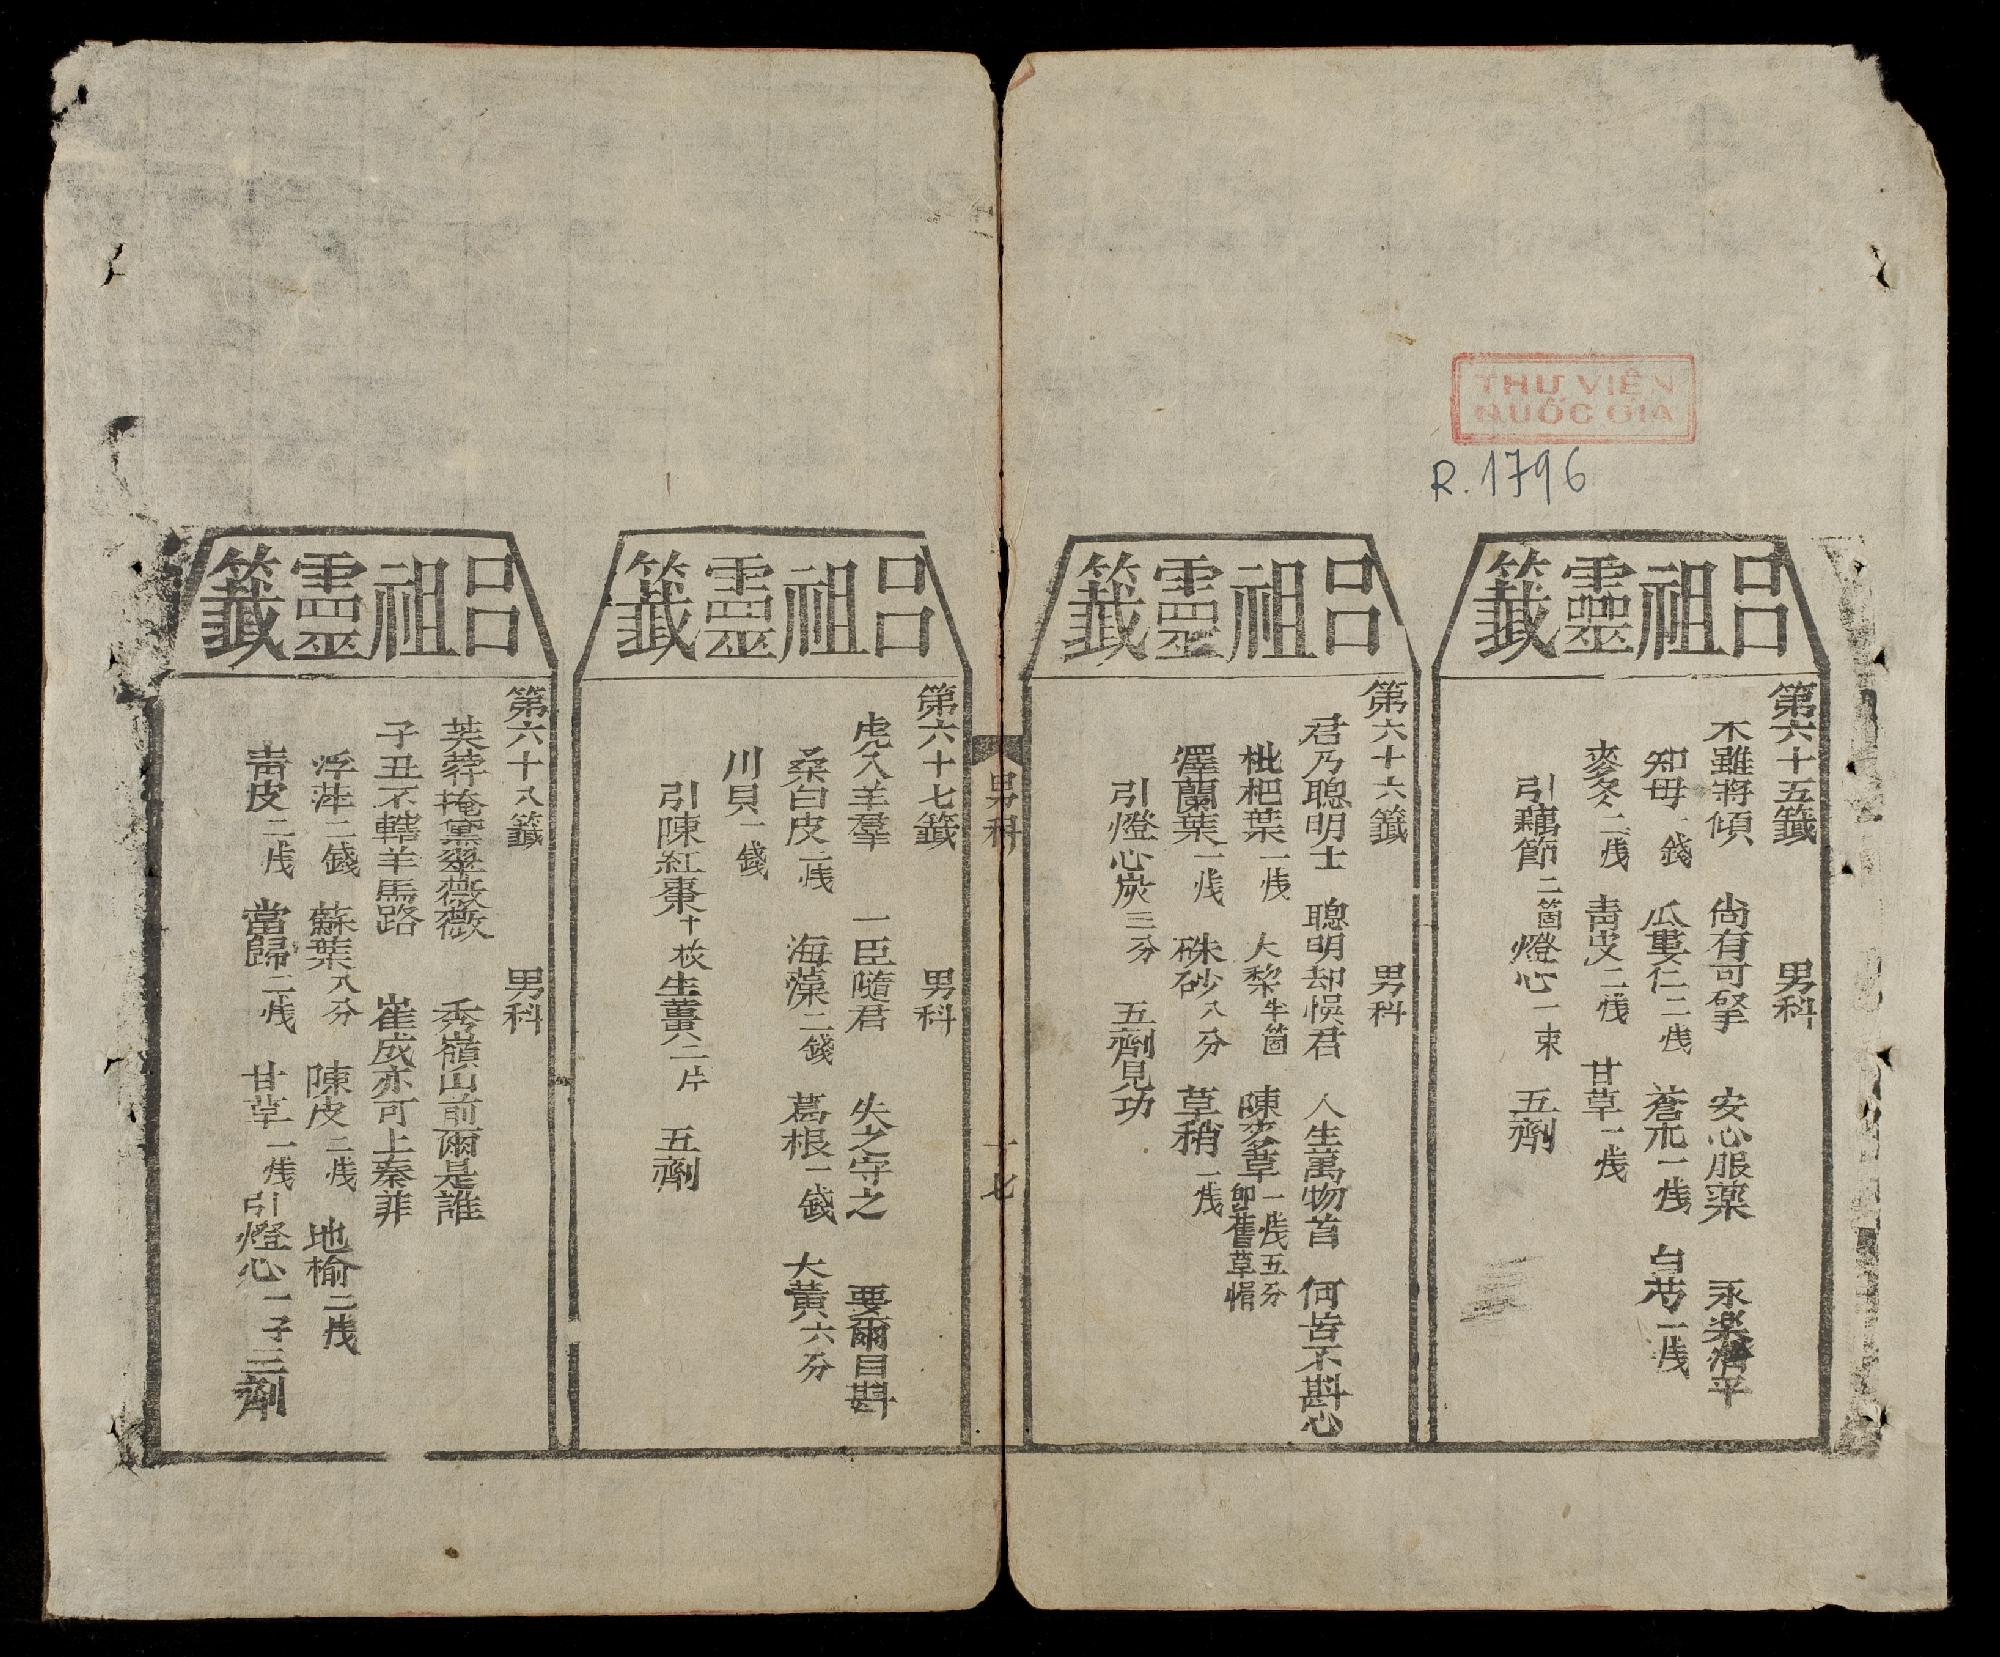 THƯ VIỆN
QUỐC GIA
R. 1796
呂祖靈籤
第六十五籤 男科
木雖將傾 尚有可擎 安心服藥 永樂清平
知母一錢 瓜蔞仁二戋 蒼朮一戋 白芍一戋
麥冬二戋 青皮二戋 甘草一戋
引藕節二箇燈心一束 五劑
呂祖靈籤
第六十六籤 男科
君乃聰明士 聰明却悞君 人生萬物首 何苦不斟心
枇杷葉一戋 大梨半箇 陳茭草一戋五分 即舊草帽
澤蘭葉一戋 硃砂八分 草稍一戋
引燈心炭三分 五劑見功
男科 十七
呂祖靈籤
第六十七籤 男科
虎入羊羣 一臣隨君 失之守之 要爾自斟
桑白皮二戋 海藻二錢 葛根一錢 大黃六分
川貝一錢
引陳紅棗十枚生薑二片 五劑
呂祖靈籤
第六十八籤 男科
芙蓉掩黛翠薇薇 秀嶺山前爾是誰
子丑不轄羊馬路 崔成亦可上秦菲
浮萍二錢 蘇葉八分 陳皮二戋 地榆二戋
青皮二戋 當歸二戋 甘草一戋引燈心一子三劑